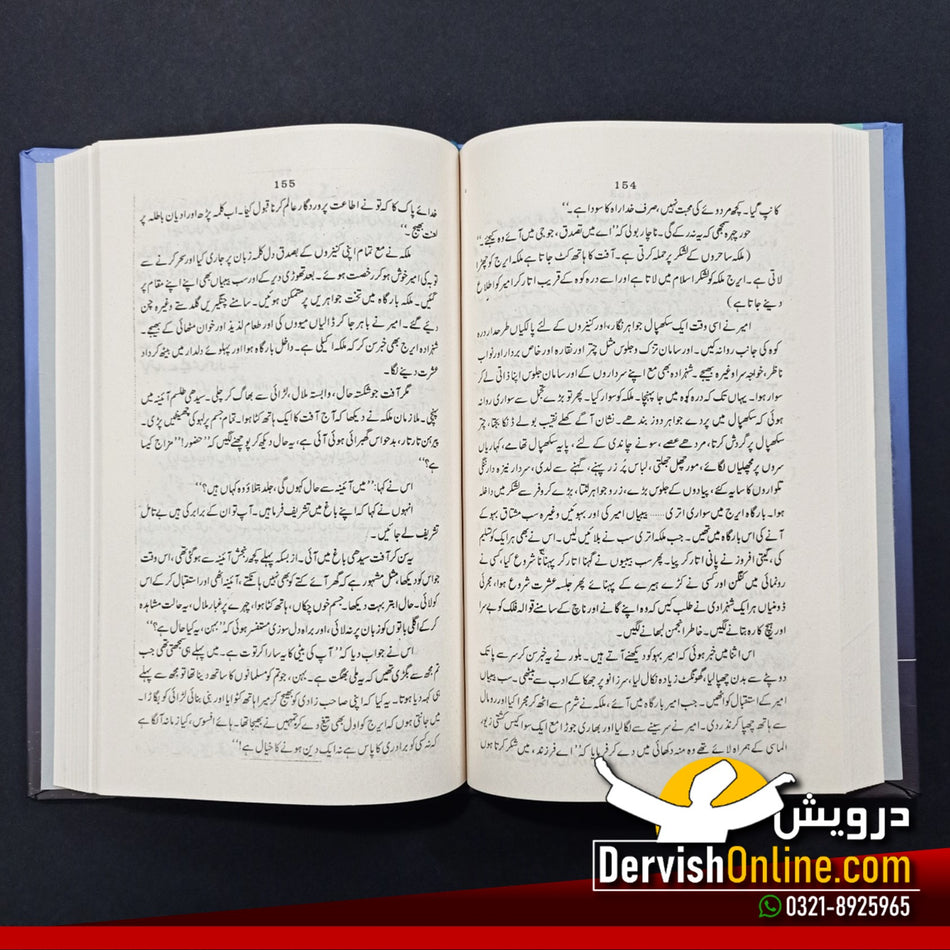 154
کانپ گیا۔ کچھ مردوئے کی محبت نہیں، صرف خدا راہ کا سودا ہے۔‘‘
حور چہرہ سمجھی کہ یہ نہ رکے گی۔ ناچار بولی کہ ’’اے میں تصدق، جو جی میں آئے وہ کیجئے۔‘‘
(ملکہ ساحروں کے لشکر پر حملہ کرتی ہے۔ آفت کا ہاتھ کٹ جاتا ہے ملکہ ایرج کو چھڑا
لاتی ہے۔ ایرج ملکہ کو لشکر اسلام میں لاتا ہے اور اسے درہ کوہ کے قریب اتار کر امیر کو اطلاع
دینے جاتا ہے)
امیر نے اسی وقت ایک سکھپال جواہر نگار، اور کنیزوں کے لئے پالکیاں طرحدار درہ
کوہ کی جانب روانہ کیں۔ اور سامان تزک و جلوس مثل چتر اور نقارہ اور خاص بردار اور نواب
ناظر، خواجہ سرا وغیرہ بھیجے۔ شہزادہ بھی مع اپنے سرداروں کے اور سامان جلوس اپنا ذاتی لے کر
سوار ہوا۔ یہاں تک کہ درہ کوہ میں جا پہنچا۔ ملکہ کو سوار کیا۔ پھر تو بڑے تجمل سے سواری روانہ
ہوئی کہ سکھپال میں پردے جواہر دوز بندھے۔ نشان آگے کھلے نقیب بولے ڈنکا بجتا، چتر
سکھپال پر گردش کرتا، مردھے عصے، سونے چاندی کے لئے، پایہ سکھپال تھامے، کہاریاں
سروں پر مچھلیاں لگائے، مورچھل جھلتی، لباس پر زر پہنے، گہنے سے لدی، سردار نیزہ دار ننگی
تلواروں کا سایہ کئے، پیادوں کے جلوس بڑے، زر و جواہر لٹتا، بڑے کروفر سے لشکر میں داخلہ
ہوا۔ بارگاہ ایرج میں سواری اتری...... بیبیاں امیر کی اور بہوئیں وغیرہ سب مشتاق بہو کے
آنے کی اس بارگاہ میں تھیں۔ جب ملکہ اتری سب نے بلائیں لیں۔ اس نے بھی ہر ایک کو تسلیم
کی، گیتی افروز نے پانی اتار کر پیا۔ پھر سب بیبیوں نے گہنا اتار کر پہنانا شروع کیا، کسی نے
رونمائی میں کنگن اور کسی نے کڑے ہیرے کے پہنائے پھر جلسہ عشرت شروع ہوا، مجرئی
ڈومنیاں ہر ایک شہزادی نے طلب کیں کہ وہ اپنے گانے اور ناچ کے سامنے قوالہ فلک کو بے سرا
اور ہیچ کارہ بتانے لگیں۔ خاطر انجمن لبھانے لگیں۔
اس اثنا میں خبر ہوئی کہ امیر بہو کو دیکھنے آتے ہیں۔ بلور نے یہ خبر سن کر سر سے پا تک
دوپٹے سے بدن چھپا لیا، گھونگٹ زیادہ نکال لیا، سر زانو پر جھکا کے ادب سے بیٹھی۔ سب بیبیاں
امیر کے استقبال کو اٹھیں۔ جب امیر بارگاہ میں آئے، ملکہ نے شرم سے اٹھ کر مجرا کیا اور منہ
سے ہاتھ چھپا کر نذر دی۔ امیر نے سر سینے سے لگایا اور بھاری جوڑا مع ایک سو ایک کشتی زیور
الماسی کے ہمراہ لائے تھے وہ منہ دکھائی میں دے کر فرمایا کہ ’’اے فرزند، میں شکر کرتا ہوں
155
خدائے پاک کا کہ تو نے اطاعت پروردگار عالم کرنا قبول کیا۔ اب کلمہ پڑھ اور ادیان باطلہ پر
لعنت بھیج۔‘‘
ملکہ نے مع تمام اپنی کنیزوں کے بصدق دل کلمہ زبان پر جاری کیا اور سحر کرنے سے
توبہ کی امیر خوش ہو کر رخصت ہوئے۔ بعد تھوڑی دیر کے اور سب بیبیاں بھی اپنے اپنے مقام پر
گئیں۔ ملکہ بارگاہ میں تخت جواہریں پر متمکن ہوئیں۔ سامنے چنگیریں گلدستے وغیرہ چن
دیئے گئے۔ امیر نے باہر جا کر ڈالیاں میووں کی اور طعام لذیذ اور خوان مٹھائی کے بھیجے۔
شہزادہ ایرج بھی خبر سن کر کہ ملکہ اکیلی ہے۔ داخل بارگاہ ہوا اور پہلوئے دلدار میں بیٹھ کر داد
عشرت دینے لگا۔
مگر آفت جو شکستہ حال، وابستہ ملال، لڑائی سے بھاگ کر چلی۔ سیدھی طلسم آئینہ میں
پہنچی۔ ملازمان ملکہ نے دیکھا کہ آج آفت کا ایک ہاتھ کٹا ہوا۔ تمام جسم پر لہو کی چھینٹیں پڑی۔
پیرہن تار تار، بدحواس گھبرائی ہوئی آئی ہے، یہ حال دیکھ کر پوچھنے لگیں کہ ’’حضور!‘‘ مزاج کیسا
ہے؟‘‘
اس نے کہا: ’’میں آئینہ سے حال کہوں گی، جلد بتلاؤ وہ کہاں ہیں؟‘‘
انہوں نے کہا کہ اپنے باغ میں تشریف فرما ہیں۔ آپ تو ان کے برابر کی ہیں بے تامل
تشریف لے جائیں۔
یہ سن کر آفت سیدھی باغ میں آئی۔ از بسکہ پہلے کچھ رنجش آئینہ سے ہو گئی تھی، اس وقت
جو اس کو دیکھا، مثل مشہور ہے کہ گھر آئے کتے کو بھی نہیں ہانکتے، آئینہ اٹھی اور استقبال کر کے اس
کو لائی۔ حال ابتر بہت دیکھا۔ جسم خوں چکاں، ہاتھ کٹا ہوا، چہرے پر غبار ملال، یہ حالت مشاہدہ
کر کے اگلی باتوں کو زبان پر نہ لائی، اور براہ دل سوزی مستفسر ہوئی کہ ’’بہن، یہ کیا حال ہے؟‘‘
اس نے جواب دیا کہ ’’آپ کی بیٹی کا یہ سارا کرتوت ہے۔ میں پہلے ہی سمجھتی تھی جب
تم مجھ سے بگڑی تھیں کہ یہ ملی بھگت ہے۔ بہن، جو تم کو مسلمانوں کا ساتھ دینا تھا تو مجھ سے پہلے
ہی کہہ دیا ہوتا۔ یہ کیا کہ اپنی صاحب زادی کو بھیج کر میرا ہاتھ کٹوایا اور بنی بنائی لڑائی کو بگاڑا۔
میں جانتی ہوں کہ ایرج کو اول بھی تیغ دے کر تمہیں نے بھیجا تھا۔ ہائے افسوس، کیا زمانہ آ لگا ہے
کہ نہ کسی کو برادری کا پاس ہے نہ ایک دین ہونے کا خیال ہے!‘‘
درویش
DervishOnline.com
0321-8925965